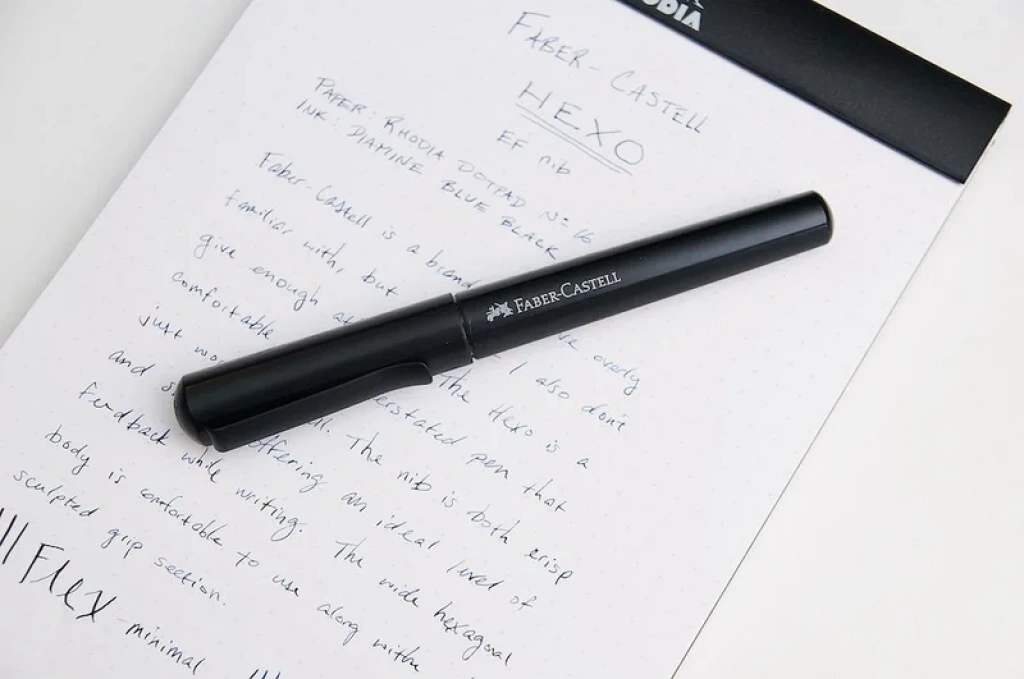 ODIA
FABER-CASTELL
HEXO
EF nib
PAPER: RHODIA DOTPAD Nº 16
INK: DIAMINE BLUE BLACK
Faber-Castell is a brand ve overly
familiar with, but I also don't
give enough at The Hexo is a
comfortable erstated pen that
just wo ll. The nib is both crisp
and s offering an ideal level of
feedback while writing. The wide hexagonal
body is comfortable to use along with a
sculpted grip section.
Flex - minimal
FABER-CASTELL